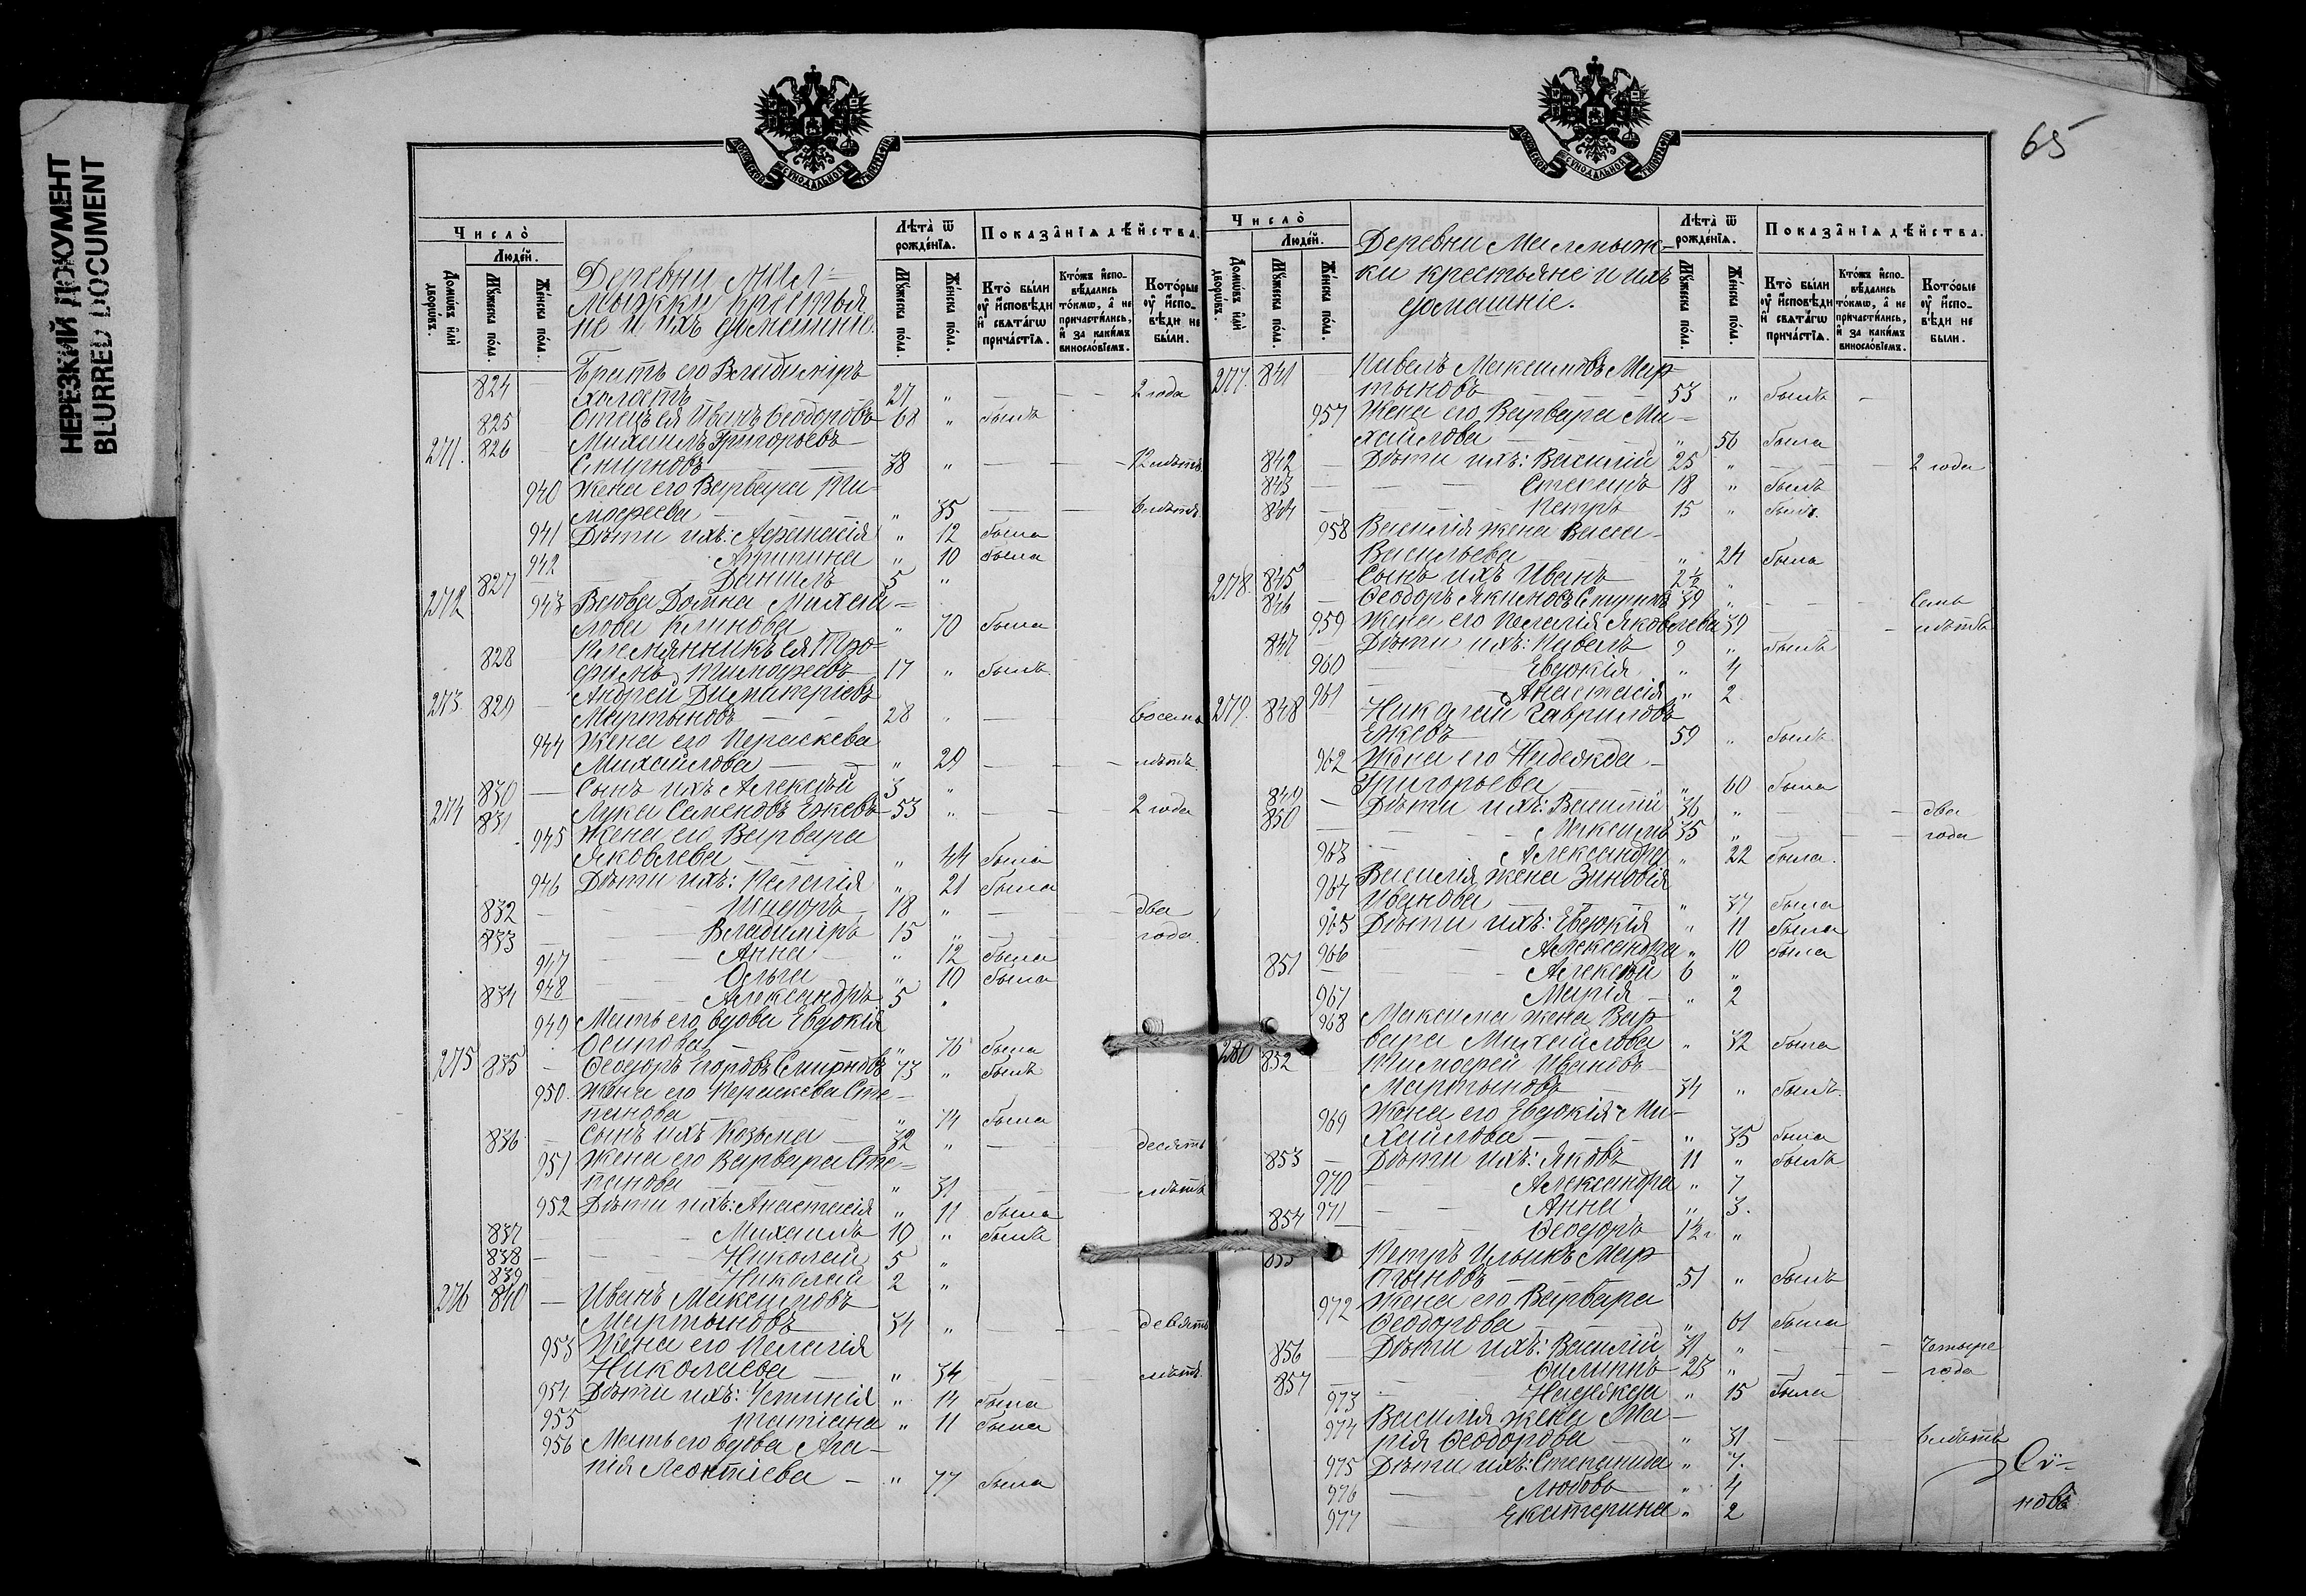 НЕРЕЗКИЙ ДОКУМЕНТ
BLURRED DOCUMENT
Число̀
Людей.
Домѡвъ или дворѡвъ.
Мꙋжеска пола.
Женска пола.
Лѣта ѿ рожденїѧ.
Мꙋжеска пола.
Женска пола.
Показанїѧ дѣйства.
Кто были оу исповѣди и свѧтагѡ причастїѧ.
Ктожъ исповѣдались токмѡ, а не причастились, и за какимъ винословїемъ.
Которые оу исповѣди не были.
Деревни Мал-
мыжки крестья
не и ихъ домашние.
824 Братъ его Владимiръ
холостъ 27 „ — — 2 года
825 Отецъ ея Иванъ Ѳеодоровъ 68 „ былъ
271. 826 — Михаилъ Григорьевъ
Смирновъ 38 „ — — 12 лѣтъ
940 Жена его Варвара Ти-
моѳеева „ 35 — — 6 лѣтъ
941 Дѣти ихъ: Аѳанасiя „ 12 была
942 Агрипина „ 10 была
827 — Данiилъ 5 „
272 943 Вдова Домна Михаи-
лова Климова „ 70 была
828 — Племянникъ ея Тро-
фимъ Тимофеевъ 17 „ былъ
273. 829 — Андрей Димитрiевъ
Мартыновъ 28 „ — восемь
944 Жена его Параскева
Михайлова „ 29 — — лѣтъ.
830 — Сынъ ихъ Алексѣй 3 „
274 831 Лука Семеновъ Ежевъ 53 „ — — 2 года
945 Жена его Варвара
Яковлева „ 44 была
946 Дѣти ихъ: Пелагiя „ 21 была
832 — — Исидоръ 18 „ — — два
833 — — Владимiръ 15 „ — — года.
947 — Анна „ 12 была
948 — Ольга „ 10 была
834 — Александръ 5 „
949 Мать его вдова Евдокiя
Осипова „ 76 была
275 835 — Ѳеодоръ Егоровъ Смирновъ 73 „ былъ
950. Жена его Параскева Сте-
панова „ 74 была
836 — Сынъ ихъ Козьма 32 „ — десять
951 Жена его Варвара Сте-
панова „ 31 — — лѣтъ
952 Дѣти ихъ: Анастасiя „ 11 была
837 — — Михаилъ 10 „ былъ
838 — — Николай 5 „
839 — — Николай 2 „
276 840 — Иванъ Максимовъ
Мартыновъ 34 „ — — девять
953 Жена его Пелагiя
Николаева „ 34 — — лѣтъ.
954 Дѣти ихъ: „ 14 была
955 Татiана „ 11 была
956 Мать его вдова Ага-
пiя Леонтiева „ 77 была
65
Число̀
Людей.
Домѡвъ или дворѡвъ.
Мꙋжеска пола.
Женска пола.
Лѣта ѿ рожденїѧ.
Мꙋжеска пола.
Женска пола.
Показанїѧ дѣйства.
Кто были оу исповѣди и свѧтагѡ причастїѧ.
Ктожъ исповѣдались токмѡ, а не причастились, и за какимъ винословїемъ.
Которые оу исповѣди не были.
Деревни Малмыж-
ки крестьяне и ихъ
домашнiе.
277. 841 — Павелъ Максимовъ Мар-
тыновъ 53 „ былъ —
957 Жена его Варвара Ми-
хайлова „ 56 была
842 — Дѣти ихъ: Василiй 25 „ — — 2 года
843 — — Степанъ 18 „ былъ
844 — — Петръ 15 „ былъ.
958 Василiя жена Васса
Васильева „ 24 была
845 — Сынъ ихъ Иванъ 2 ½ „
278. 846 — Ѳеодоръ 39 „ — — — Семь
959 Жена его Пелагiя Яковлева 39 — — — лѣтъ
847 — Дѣти ихъ: Павелъ 9 „ былъ
960 — Евдокiя „ 4
961 — Анастасiя „ 2.
279. 848 — Николай Гавриловъ
Ежевъ 59 „ былъ
962 Жена его Надежда
Григорьева „ 60 была
849 — Дѣти ихъ: Василiй 36 „ — — два
850 — — Максимъ 35 „ — — года
963 — Александра „ 22 была.
964 Василiя жена Зиновiя
Иванова „ 37 была
965 Дѣти ихъ: Евдокiя „ 11 была
966 — Александра „ 10 была
851 — Алексѣй 6 „
967 — Марiя „ 2
968 Максима жена Вар-
вара Михайлова „ 32 была
280 852 Тимоѳей Ивановъ
Мартыновъ 34 „ былъ.
969 Жена его Евдокiя Ми-
хайлова „ 35 была
853 — Дѣти ихъ: Яковъ 11 „ былъ
970 — Александра „ 7
971 — Анна „ 3.
854 — Ѳеодоръ „
855 Петръ Ильинъ Мар-
тыновъ 51 „ былъ
972 Жена его Варвара
Ѳеодорова „ 61 была
856 — Дѣти ихъ: Василiй 31 „ — — четыре
857 — Филиппъ 23 „ — — года
973 — Надежда „ 15 была
974 Василiя жена Ма-
рiя Ѳеодорова „ 31 — — 6 лѣтъ
975 Дѣти ихъ: Степанида „ 7.
976 — Любовь „ 4
977 — Екатерина „ 2
новъ